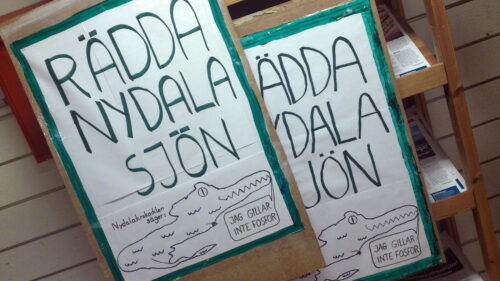 RÄDDA
NYDALA
SJÖN
Nydalakrokodilen
säger:
JAG GILLAR
INTE FOSFOR
ÄDDA
YDALA
JÖN
JAG GILLAR
INTE FOSFOR